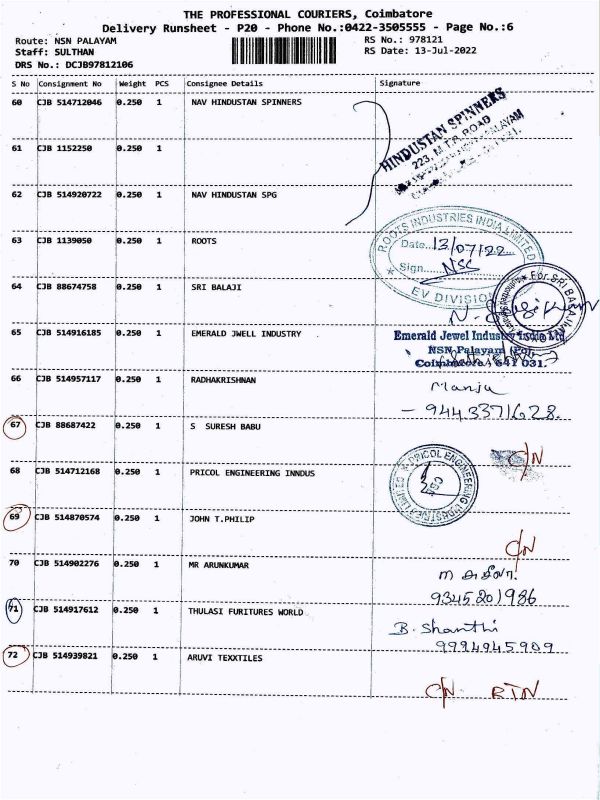 THE PROFESSIONAL COURIERS, Coimbatore
Delivery Runsheet - P20 - Phone No.:0422-3505555 - Page No.:6
Route: NSN PALAYAM
Staff: SULTHAN
DRS No.: DCJB97812106
RS No.: 978121
RS Date: 13-Jul-2022
S No Consignment No Weight PCS Consignee Details Signature
60 CJB 514712046 0.250 1 NAV HINDUSTAN SPINNERS
HINDUSTAN SPINNERS
223, M.T.P. ROAD
61 CJB 1152250 0.250 1
62 CJB 514920722 0.250 1 NAV HINDUSTAN SPG
63 CJB 1139050 0.250 1 ROOTS
ROOTS INDUSTRIES INDIA LIMITED
Date...13/07/22
Sign... NSC
EV DIVISION
64 CJB 88674758 0.250 1 SRI BALAJI
For SRI BALAJI
65 CJB 514916185 0.250 1 EMERALD JWELL INDUSTRY
Emerald Jewel Industry India Ltd.
NSN Palayam (Po),
Coimbatore - 641 031.
66 CJB 514957117 0.250 1 RADHAKRISHNAN
Manju
- 9443371628.
67 CJB 88687422 0.250 1 S SURESH BABU
C/N
68 CJB 514712168 0.250 1 PRICOL ENGINEERING INNDUS
PRICOL ENGINEERING INDUSTRIES LIMITED
69 CJB 514870574 0.250 1 JOHN T.PHILIP
C/N
70 CJB 514902276 0.250 1 MR ARUNKUMAR
9345201986
71 CJB 514917612 0.250 1 THULASI FURITURES WORLD
B. Shanthi
9994945909
72 CJB 514939821 0.250 1 ARUVI TEXXTILES
C/N RTN